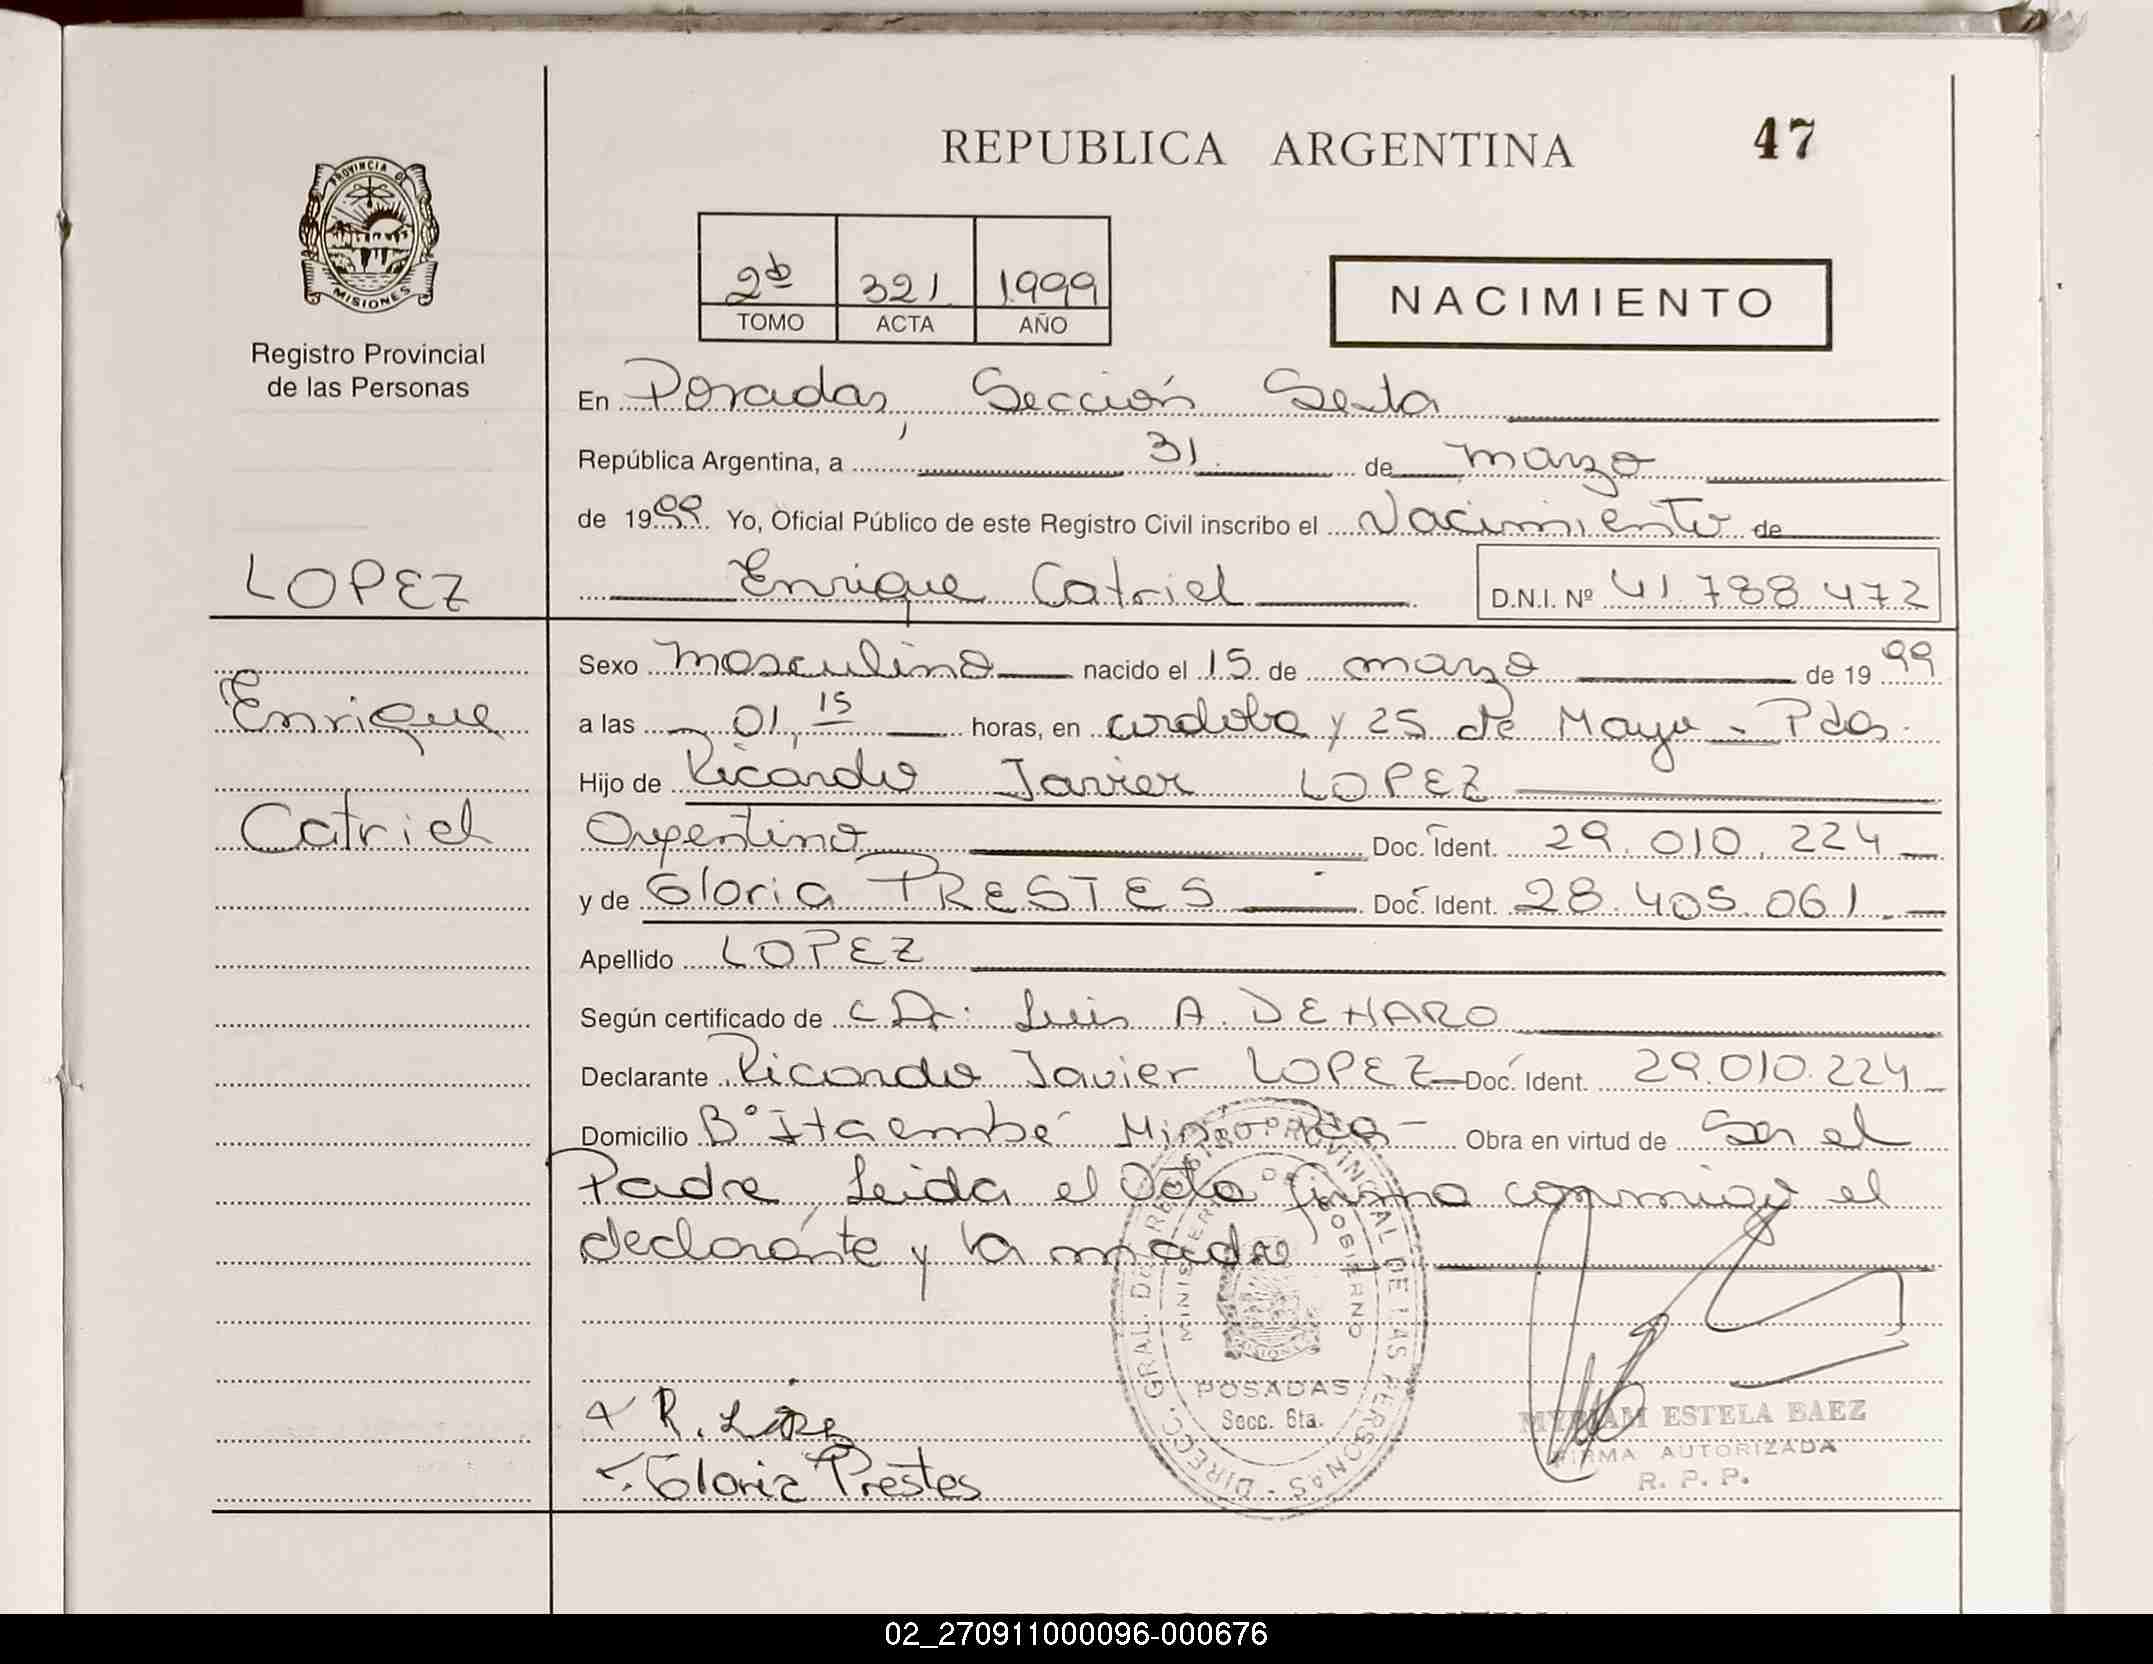 REPUBLICA ARGENTINA
47
PROVINCIA DE
MISIONES
Registro Provincial
de las Personas
2b 321 1999
TOMO ACTA AÑO
NACIMIENTO
En Posadas, Sección Sexta
República Argentina, a 31 de marzo
de 1999 Yo, Oficial Público de este Registro Civil inscribo el Nacimiento de
LOPEZ
Enrique Catriel D.N.I. Nº 41.788.472
Sexo masculino nacido el 15 de marzo de 1999
Enrique
a las 01,15 horas, en cordoba y 25 de Mayo - Pdas.
Hijo de Ricardo Javier LOPEZ
Catriel
Argentino Doc. Ident. 29.010.224
y de Gloria PRESTES Doc. Ident. 28.405.061.
Apellido LOPEZ
Según certificado de Dr. Luis A. DE HARO
Declarante Ricardo Javier LOPEZ Doc. Ident. 29.010.224
Domicilio Bº Itaembé Mini Pdas - Obra en virtud de Ser el
Padre Leida el Acta firma conmigo el
declarante y la madre
DIRECC. GRAL. DE REGISTRO PROVINCIAL DE LAS PERSONAS
MINISTERIO DE GOBIERNO
POSADAS
Secc. 6ta.
R. López
Gloria Prestes
MYRIAM ESTELA BAEZ
FIRMA AUTORIZADA
R. P. P.
02_270911000096-000676